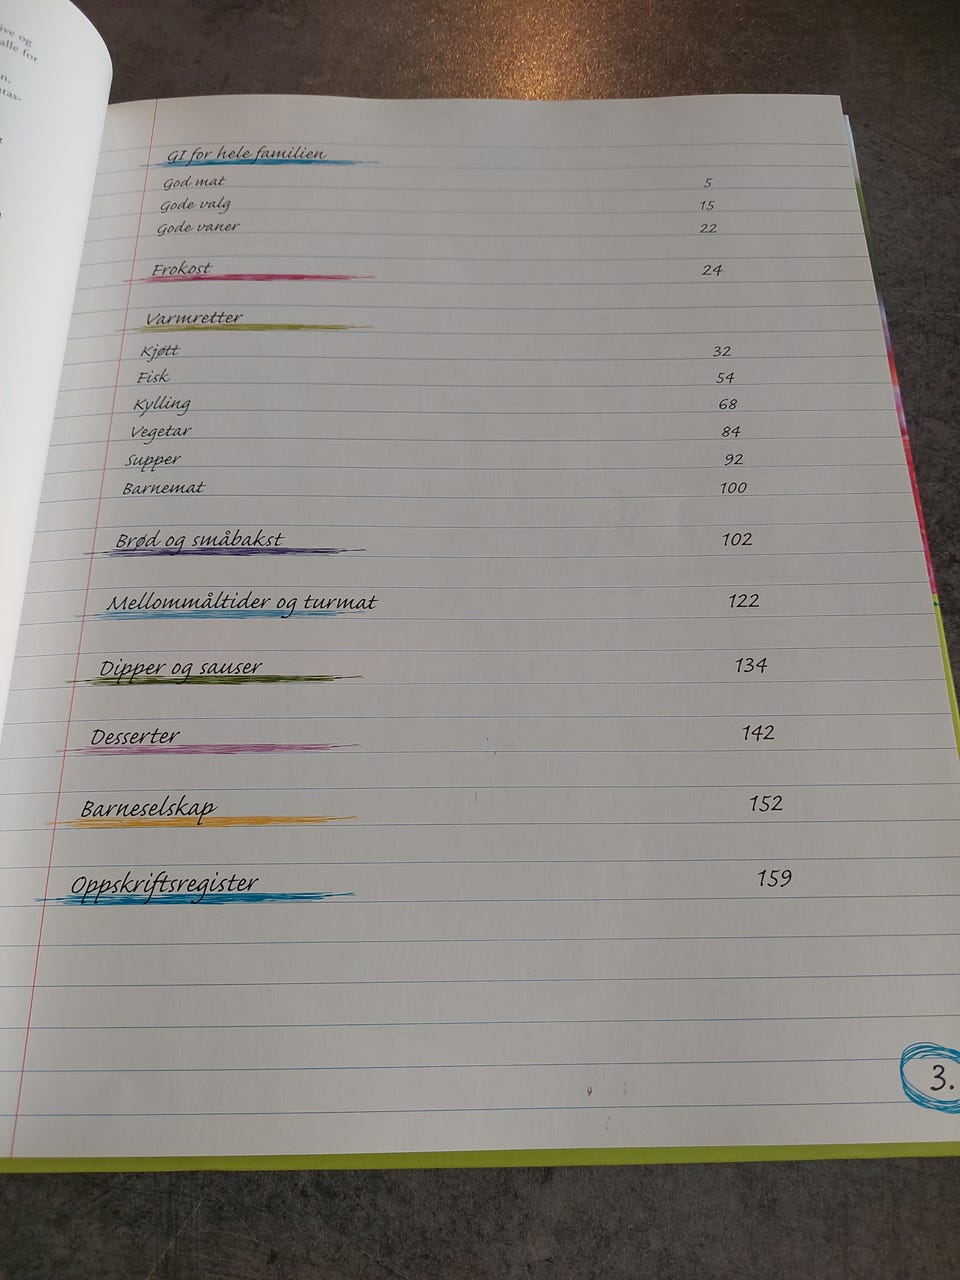 ive og
alle for
n,
ntas-
GI for hele familien
God mat 5
Gode valg 15
Gode vaner 22
Frokost 24
Varmretter
Kjøtt 32
Fisk 54
Kylling 68
Vegetar 84
Supper 92
Barnemat 100
Brød og småbakst 102
Mellommåltider og turmat 122
Dipper og sauser 134
Desserter 142
Barneselskap 152
Oppskriftsregister 159
3.